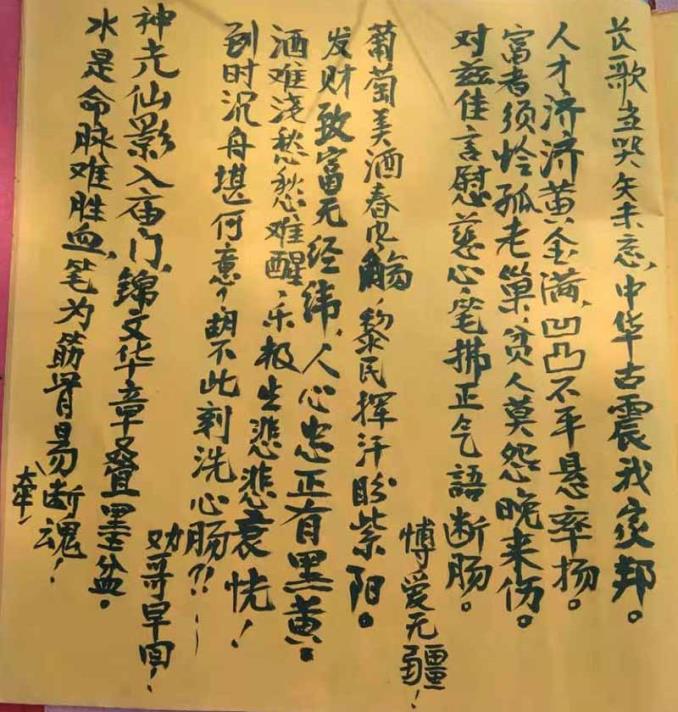 长歌当哭矢未忘，中华古震我家邦。
人才济济黄金满，凹凸不平悬率扬。
富者须怜孤老巢，贫人莫怨晚来伤。
对兹佳言慰慈心，笔拂正气語断肠。
博爱无疆！
葡萄美酒春 觞，黎民挥汗盼紫阳。
发财致富无经纬，人心忠正有黑黄。
酒难浇愁愁难醒，乐极生悲悲衰恍！
到时沉舟堪何意，胡不此刻洗心肠？！
劝哥早回！
神光仙影入庙门，锦文华章叠墨盆。
水是命脉难胜血，笔为筋骨易断魂！